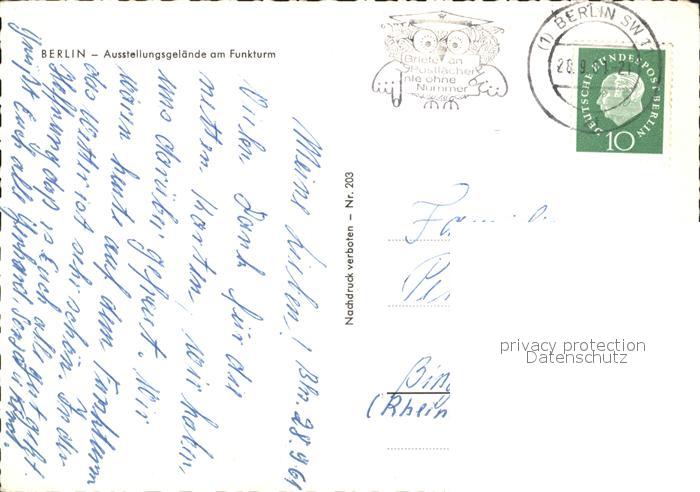 BERLIN – Ausstellungsgelände am Funkturm
Briefe an
Postfächer
nie ohne
Nummer
(1) BERLIN SW 1
28.9.
DEUTSCHE BUNDESPOST BERLIN
10
Nachdruck verboten – Nr. 203
Meine Lieben! Bln. 28.9.61
Vielen Dank für die
netten Karten, wir haben
uns darüber gefreut. Wir
waren heute auf dem Funkturm
das Wetter ist schön. In der
Hoffnung das es Euch alle gut geht
grüßt Euch alle Gerhard
Bin
(Rhein
privacy protection
Datenschutz